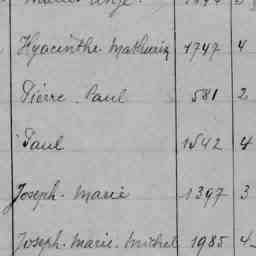 Hyacinthe Mathurin 1747 4
Pierre Paul 581 2
Paul 1542 4
Joseph-Marie 1397 3
Joseph-Marie-Michel 1985 4